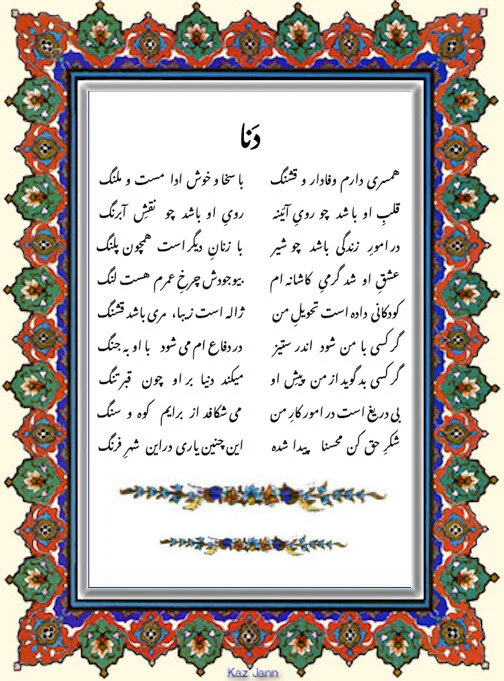 دَنا
همسری دارم وفادار و قشنگ با سخا و خوش ادا مست و ملنگ
قلبِ او باشد چو رویِ آئینه رویِ او باشد چو نقشِ آبرنگ
در امورِ زندگی باشد چو شیر با زنانِ دیگر است همچون پلنگ
عشقِ او شد گرمیِ کاشانه ام بیوجودش چرخِ عمرم هست لنگ
کودکانی داده است تحویلِ من ژاله است زیبا، مری باشد قشنگ
گر کسی با من شود اندر ستیز در دفاع ام می شود با او به جنگ
گر کسی بد گوید از من پیشِ او میکند دنیا بر او چون قبر تنگ
بی دریغ است در امور کارِ من می شکافد از برایم کوه و سنگ
شکرِ حق کن محسنا پیدا شده این چنین یاری در این شهرِ فرنگ
Kaz Jann